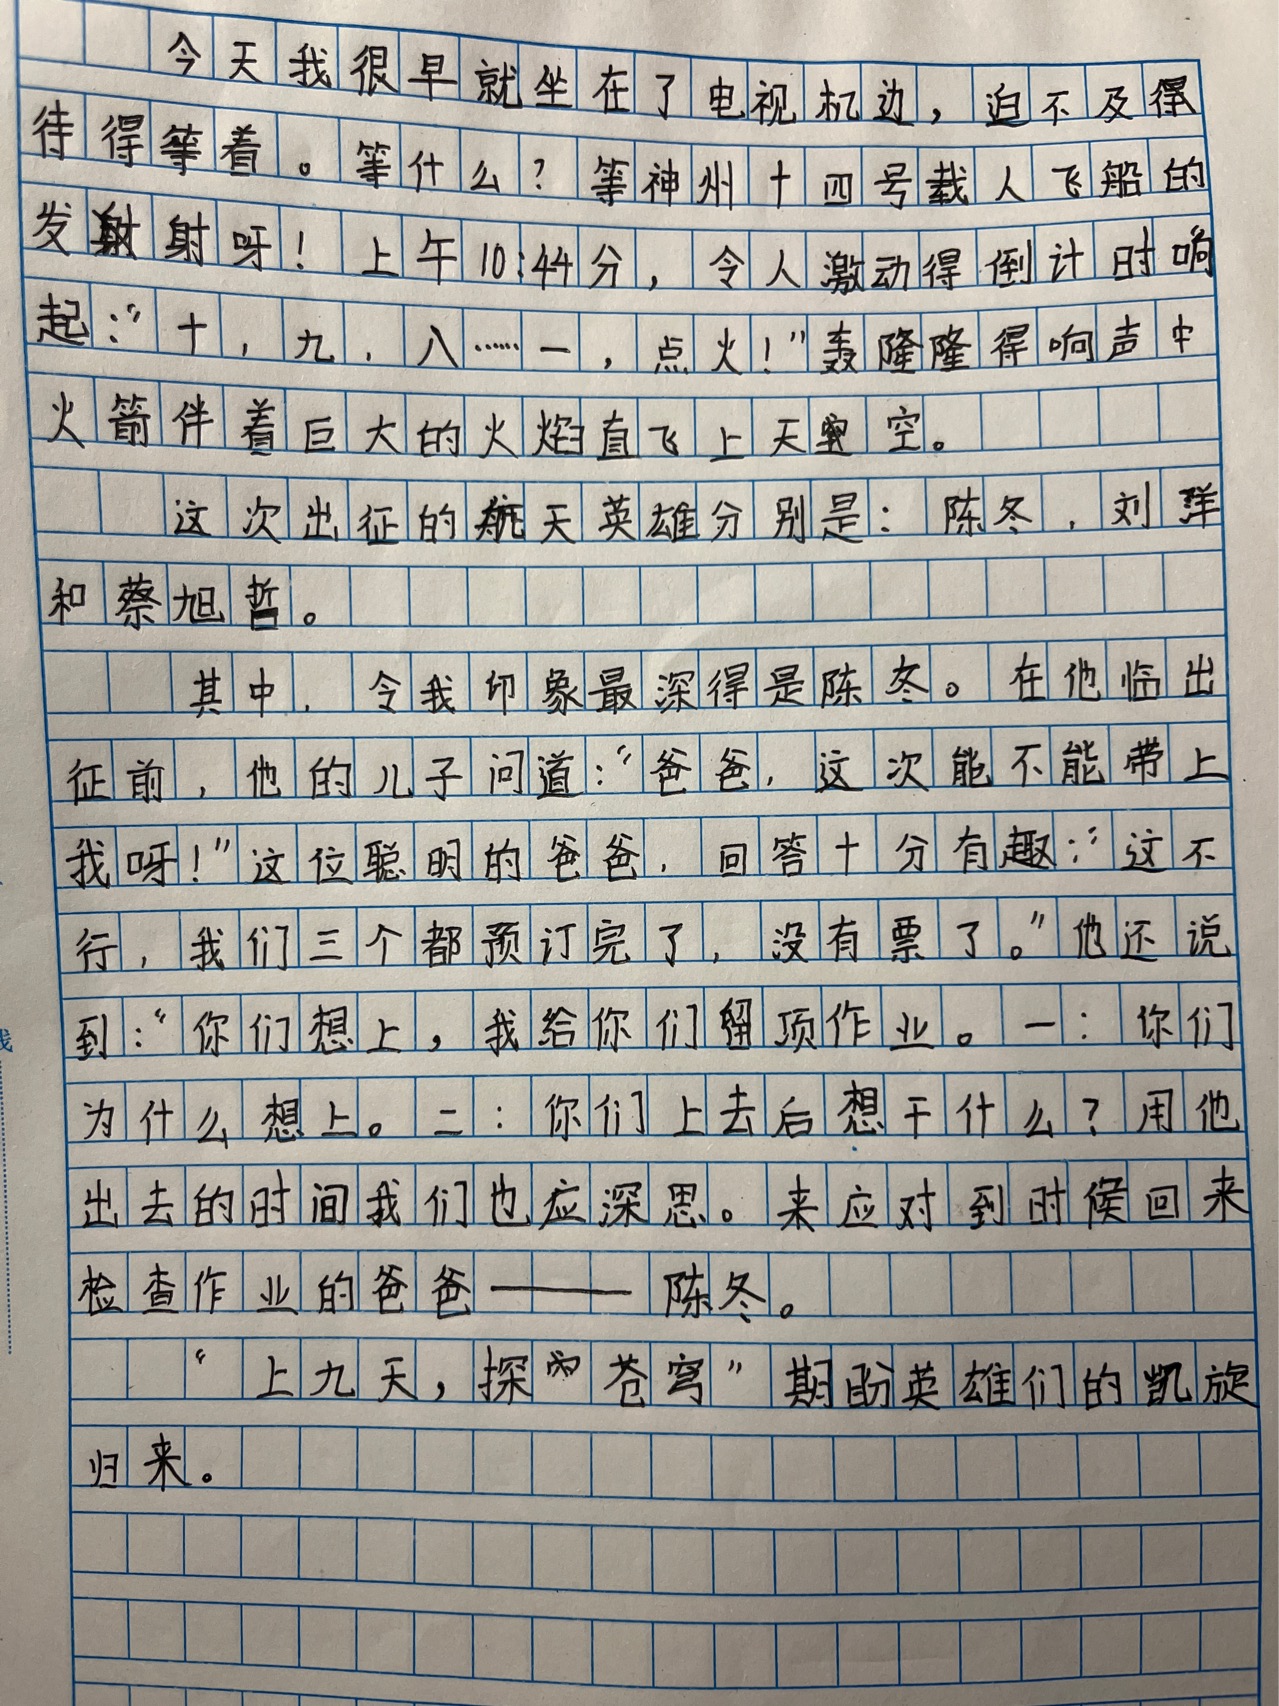 今天我很早就坐在了电视机边，迫不及得
待得等着。等什么？等神州十四号载人飞船的
发射呀！上午10:44分，令人激动得倒计时响
起：“十，九，八……一，点火！”轰隆隆得响声中
火箭伴着巨大的火焰直飞上天空。
这次出征的航天英雄分别是：陈冬，刘洋
和蔡旭哲。
其中，令我印象最深得是陈冬。在他临出
征前，他的儿子问道：“爸爸，这次能不能带上
我呀！”这位聪明的爸爸，回答十分有趣：“这不
行，我们三个都预订完了，没有票了。”他还说
到：“你们想上，我给你们留项作业。一：你们
为什么想上。二：你们上去后想干什么？用他
出去的时间我们也应深思。来应对到时候回来
检查作业的爸爸——陈冬。
“上九天，探苍穹”期盼英雄们的凯旋
归来。